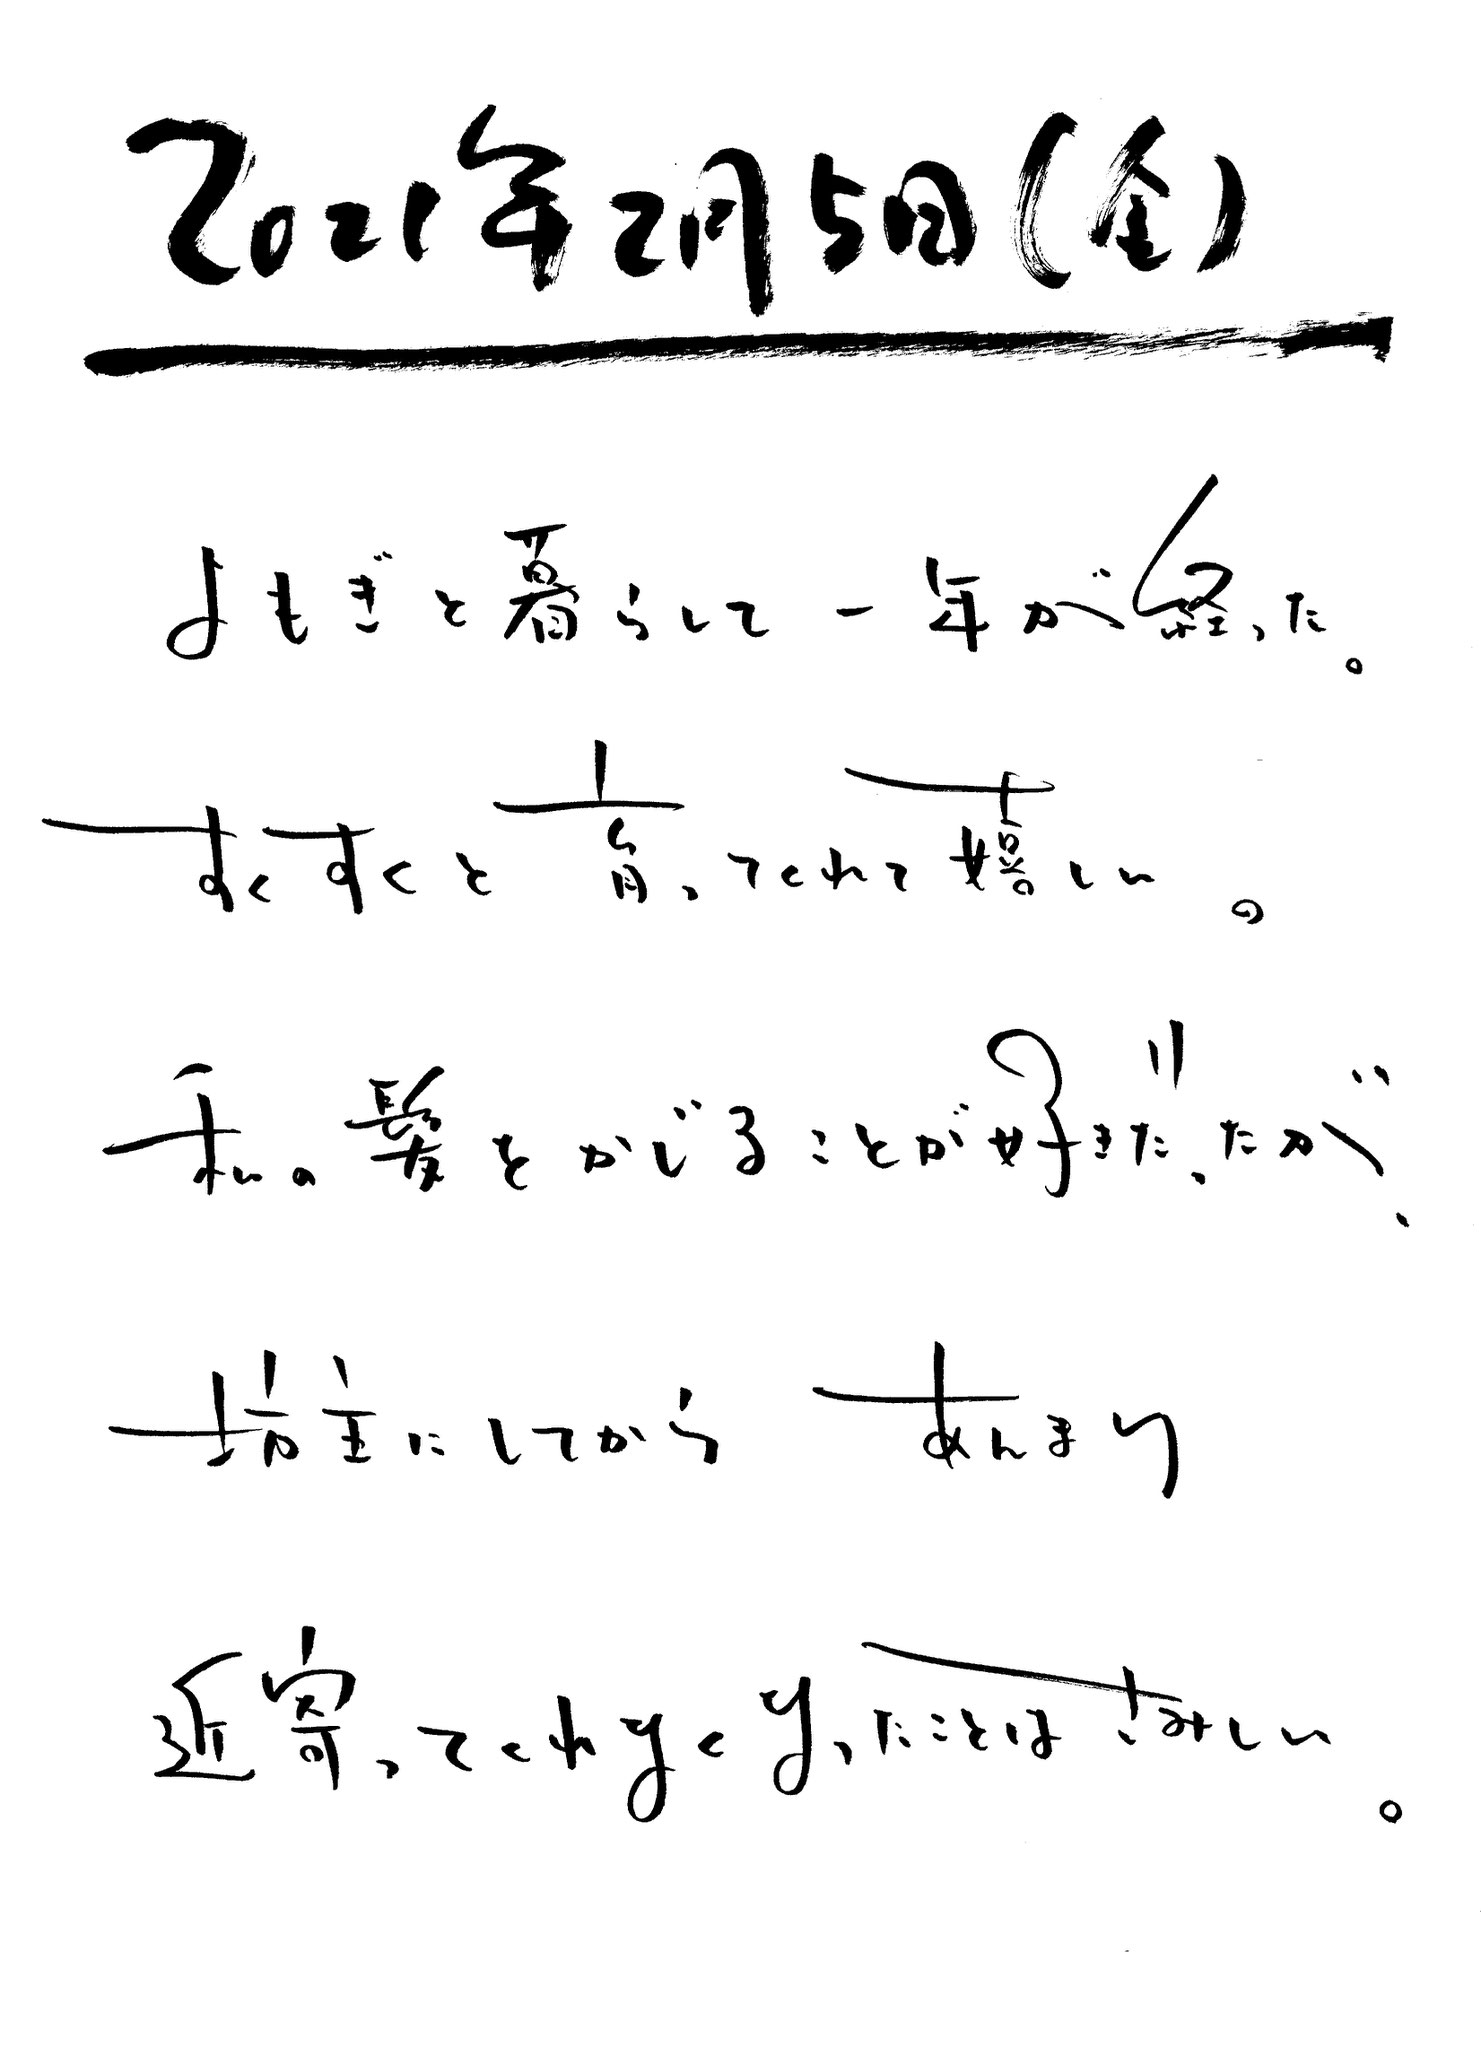 2021年2月5日(金)
よもぎと暮らして一年が経った。
すくすくと育ってくれて嬉しい。
私の髪をかじることが好きだったが、
坊主にしてからあんまり
近寄ってくれなくなったことはさみしい。